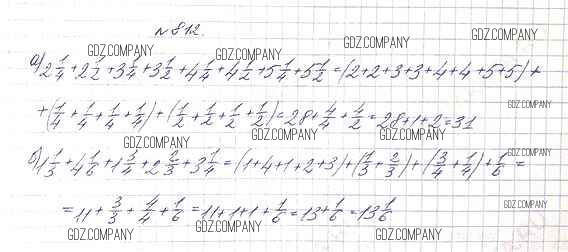 №812.
GDZ.COMPANY GDZ.COMPANY GDZ.COMPANY GDZ.COMPANY
а) 2 1/4 + 2 1/2 + 3 1/4 + 3 1/2 + 4 1/4 + 4 1/2 + 5 1/4 + 5 1/2 = (2+2+3+3+4+4+5+5) +
GDZ.COMPANY
+ (1/4 + 1/4 + 1/4 + 1/4) + (1/2 + 1/2 + 1/2 + 1/2) = 28 + 4/4 + 4/2 = 28+1+2 = 31
GDZ.COMPANY GDZ.COMPANY GDZ.COMPANY GDZ.COMPANY
б) 1 1/3 + 4 1/6 + 1 3/4 + 2 2/3 + 3 1/4 = (1+4+1+2+3) + (1/3 + 2/3) + (3/4 + 1/4) + 1/6 =
= 11 + 3/3 + 4/4 + 1/6 = 11+1+1+ 1/6 = 13 + 1/6 = 13 1/6
GDZ.COMPANY GDZ.COMPANY GDZ.COMPANY GDZ.COMPANY